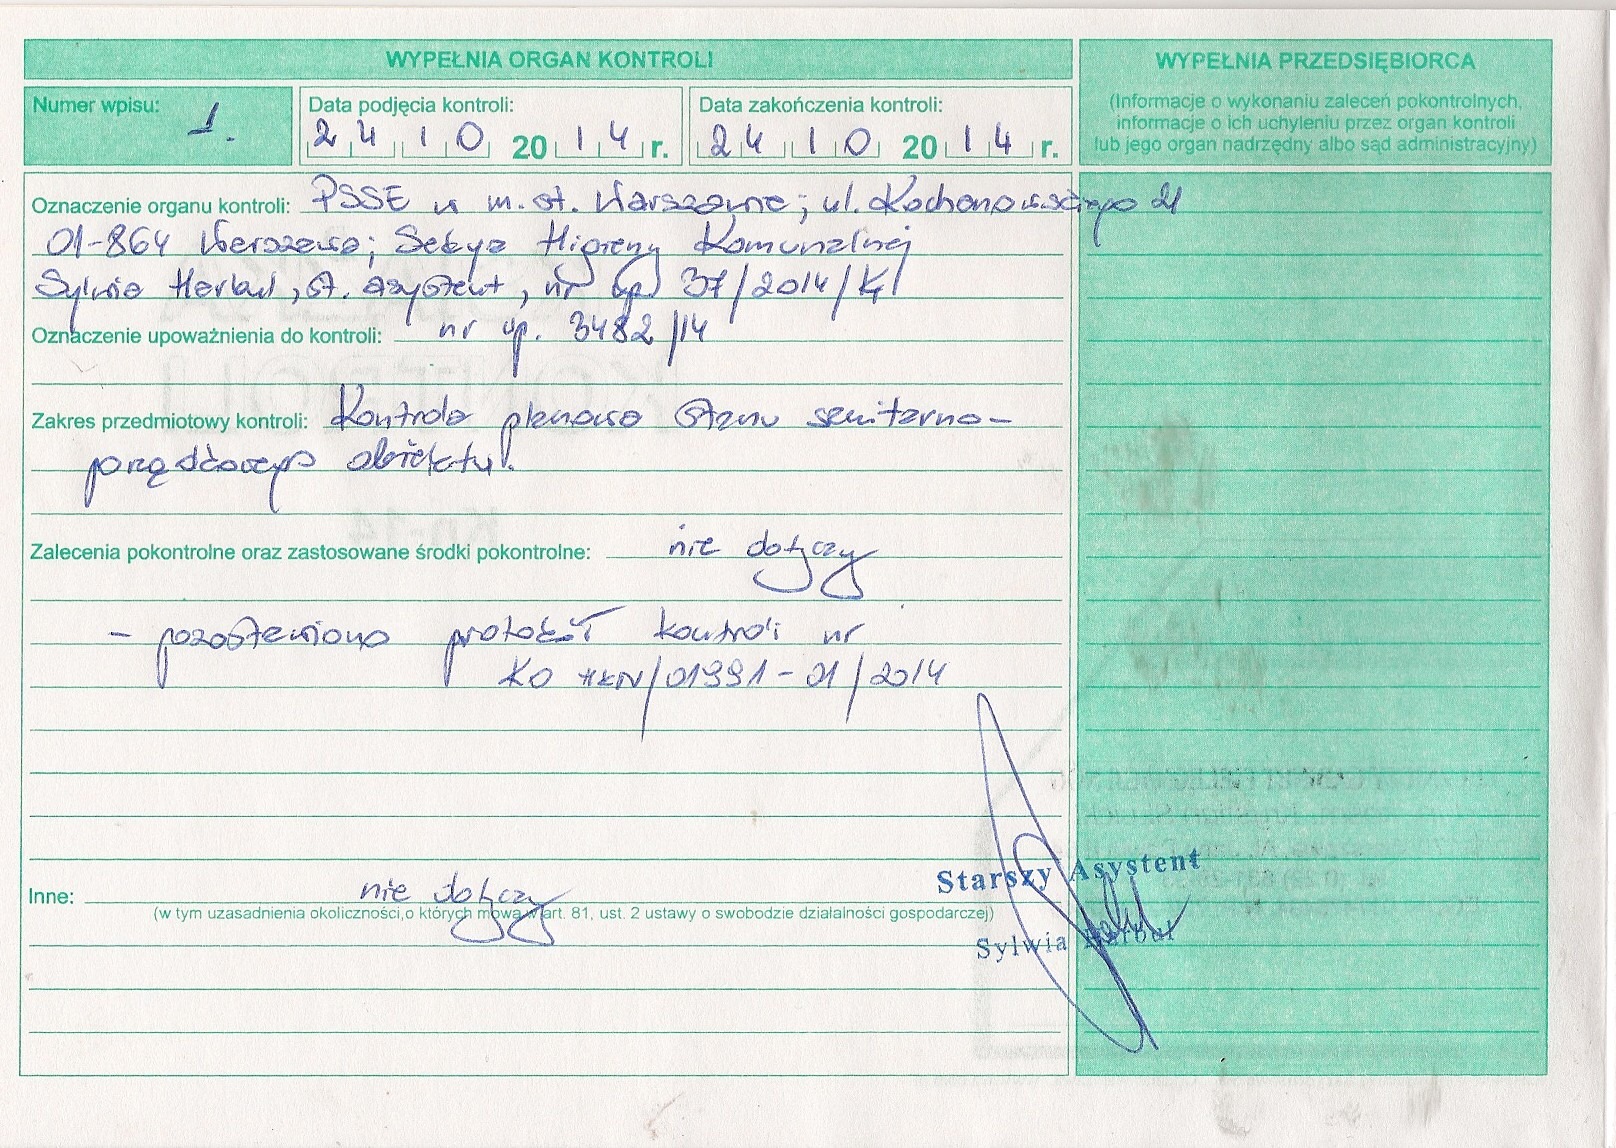 WYPEŁNIA ORGAN KONTROLI
WYPEŁNIA PRZEDSIĘBIORCA
(Informacje o wykonaniu zaleceń pokontrolnych,
informacje o ich uchyleniu przez organ kontroli
lub jego organ nadrzędny albo sąd administracyjny)
Numer wpisu: 1.
Data podjęcia kontroli: 24 10 2014 r.
Data zakończenia kontroli: 24 10 2014 r.
Oznaczenie organu kontroli: PSSE w m. st. Warszawie; ul. Kochanowskiego 21
01-864 Warszawa; Sekcja Higieny Komunalnej
Sylwia Harbul, st. asystent, nr up 37/2014/K
Oznaczenie upoważnienia do kontroli: nr up. 3482/14
Zakres przedmiotowy kontroli: Kontrola planowa stanu sanitarno-
porządkowego obiektu.
Zalecenia pokontrolne oraz zastosowane środki pokontrolne: nie dotyczy
- pozostawiono protokół kontroli nr
KO HKN/01991-01/2014
Inne: nie dotyczy
(w tym uzasadnienia okoliczności,o których mowa w art. 81, ust. 2 ustawy o swobodzie działalności gospodarczej)
Starszy Asystent
Sylwia Harbul